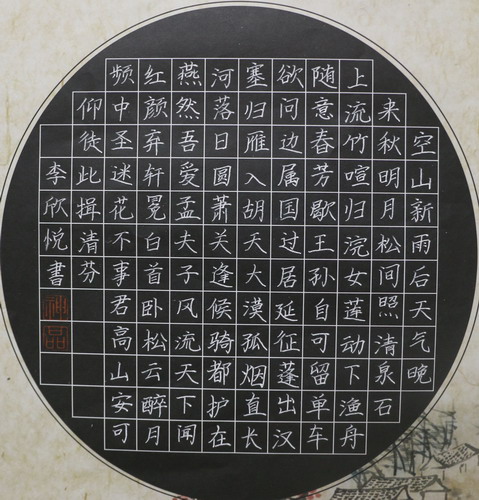 空山新雨后天气晚
来秋明月松间照清泉石
上流竹喧归浣女莲动下渔舟
随意春芳歇王孙自可留单车
欲问边属国过居延征蓬出汉
塞归雁入胡天大漠孤烟直长
河落日圆萧关逢候骑都护在
燕然吾爱孟夫子风流天下闻
红颜弃轩冕白首卧松云醉月
频中圣迷花不事君高山安可
仰徒此揖清芬
李欣悦書
神品